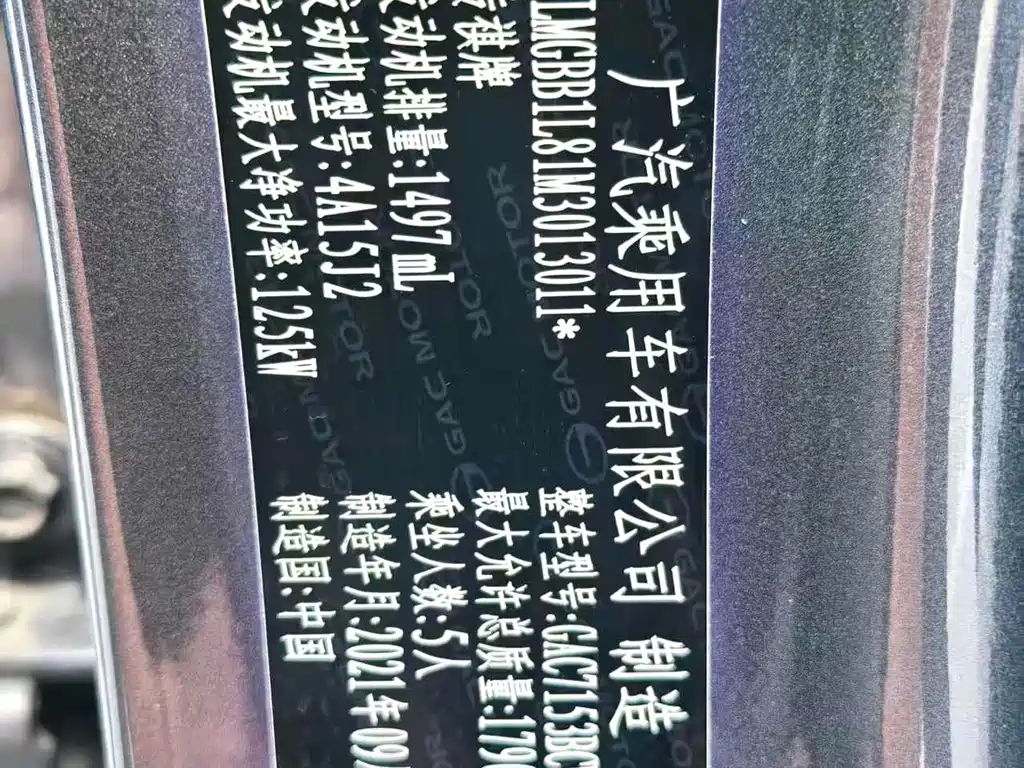 广汽乘用车有限公司 制造
LMGBB1L81M3013011* 整车型号:GAC7153B
祺牌 最大允许总质量:179
发动机排量:1497 mL 乘坐人数:5人
发动机型号:4A15J2 制造年月:2021年09
发动机最大净功率:125kW 制造国:中国
GAC MOTOR